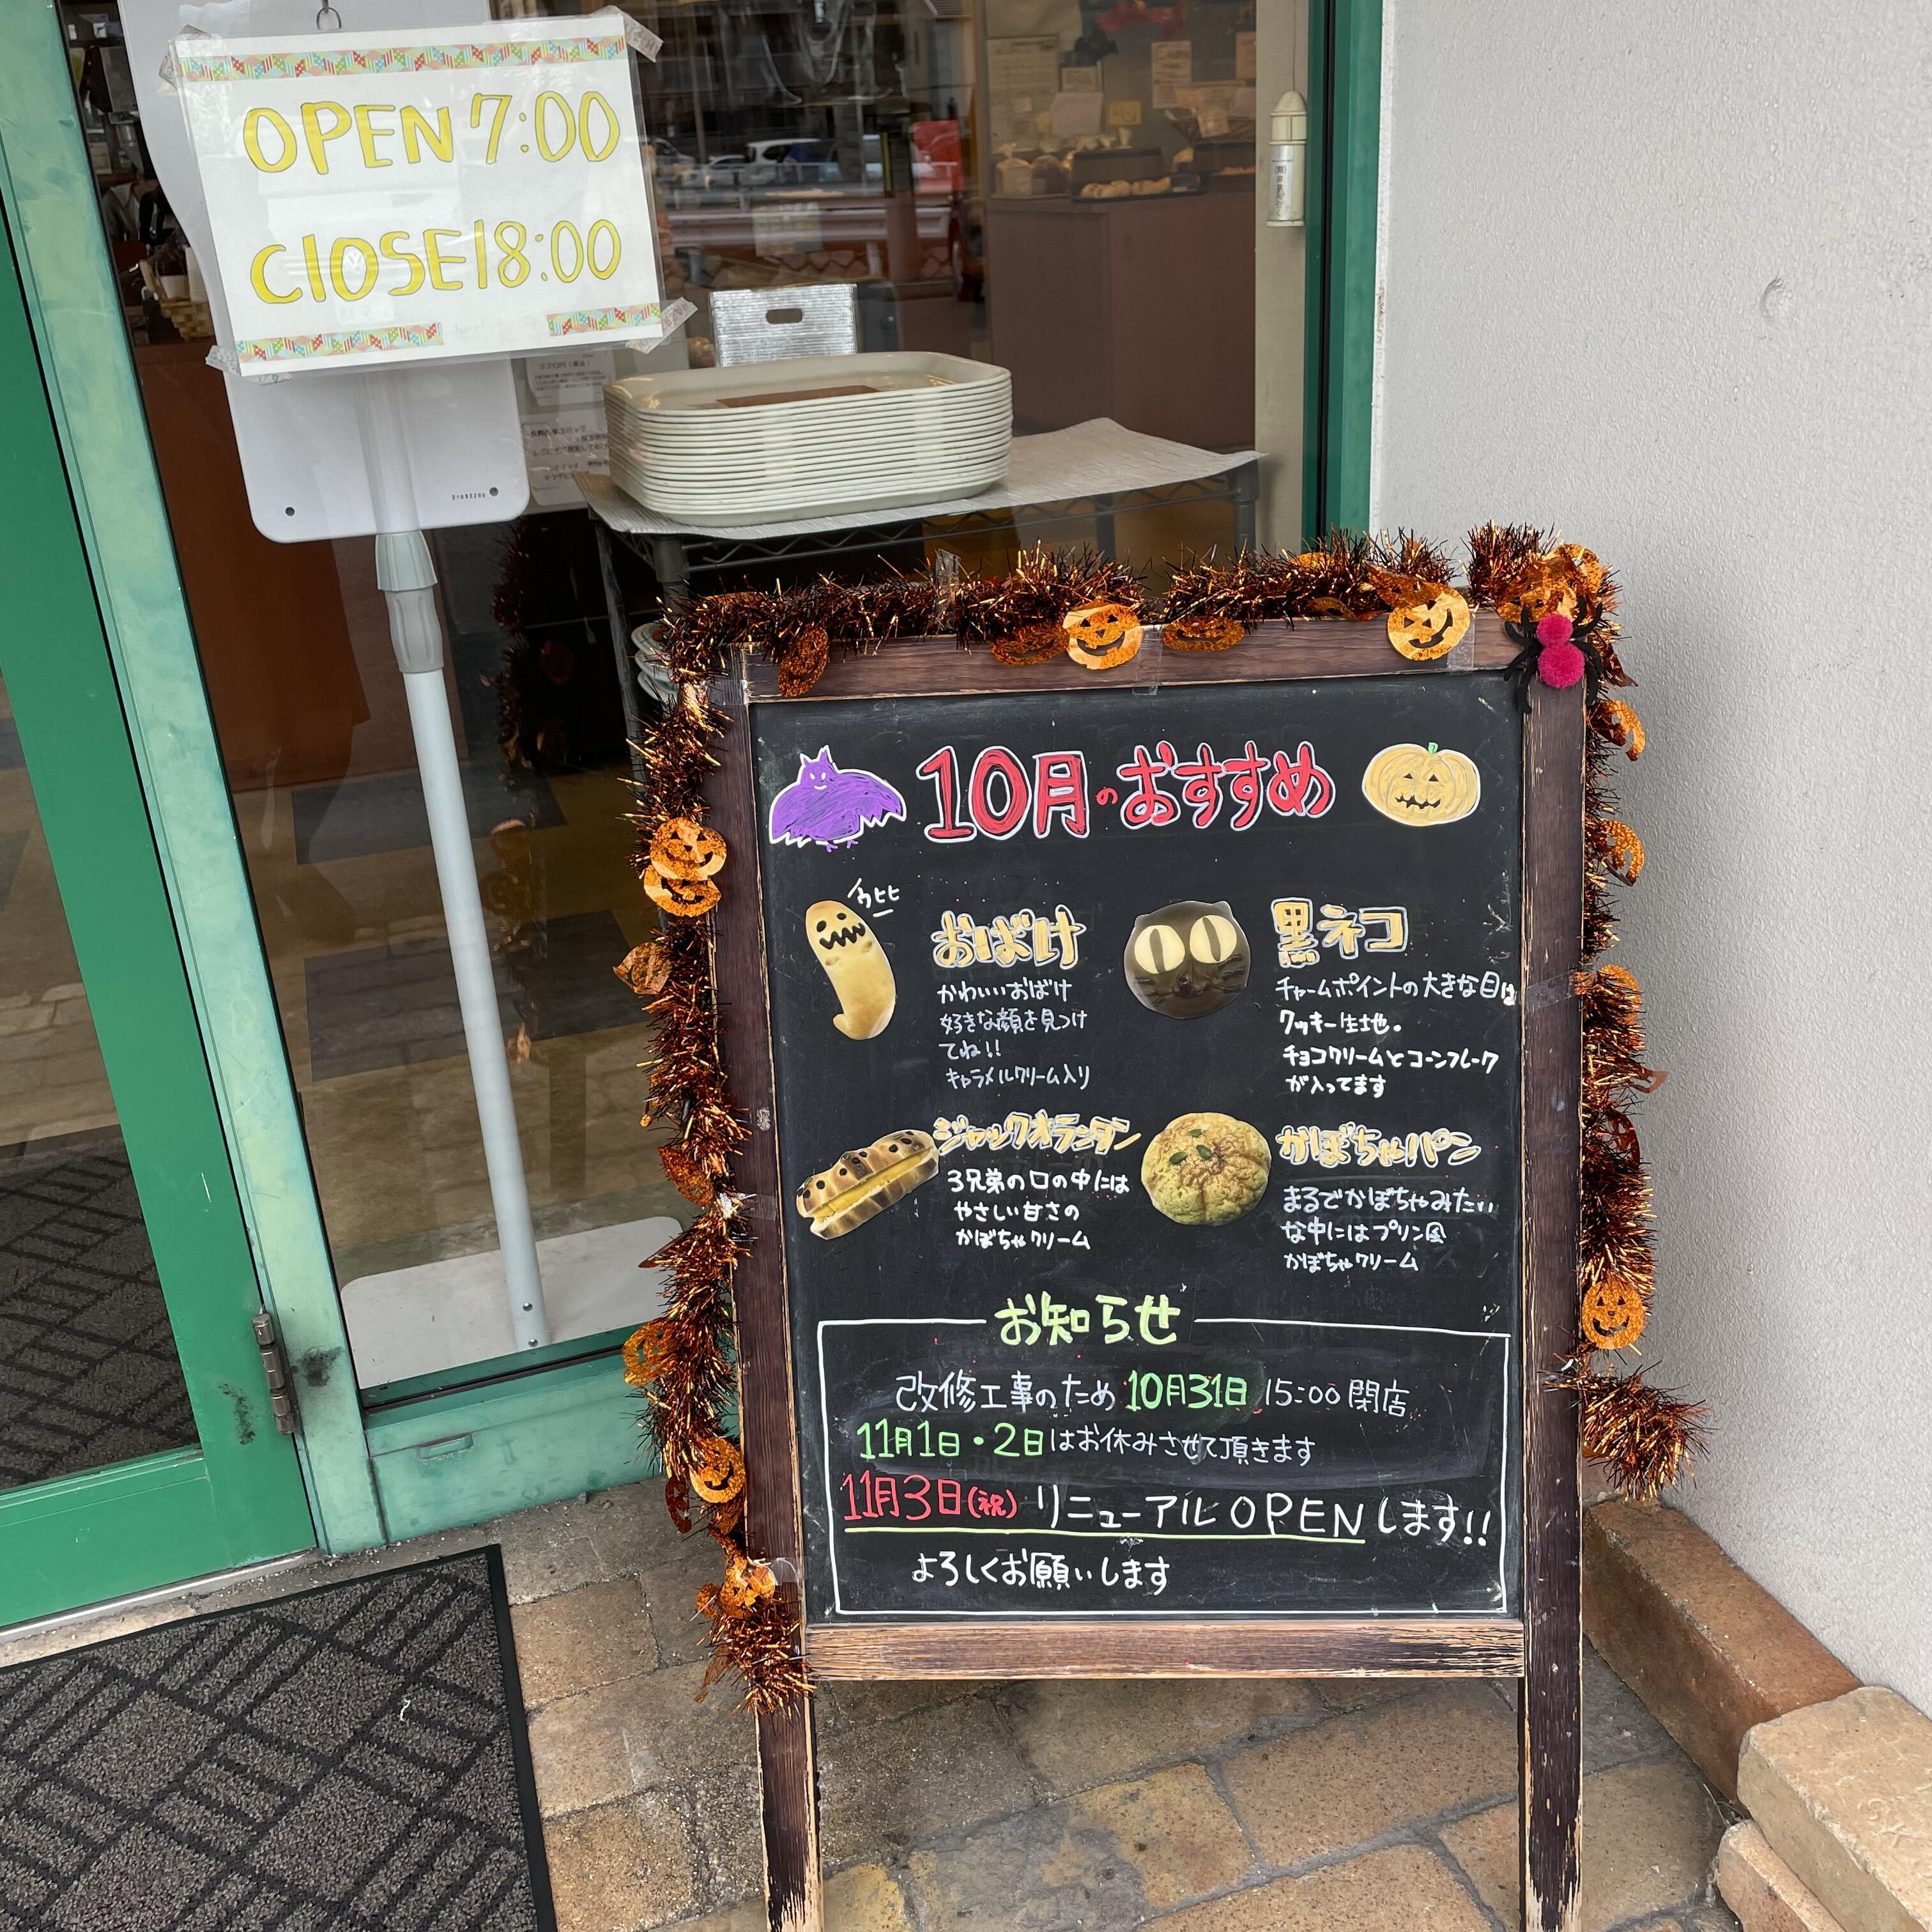 OPEN 7:00
ClOSE 18:00
10月のおすすめ
ウヒヒ
おばけ
かわいいおばけ
好きな顔を見つけ
てね!!
キャラメルクリーム入り
黒ネコ
チャームポイントの大きな目は
クッキー生地。
チョコクリームとコーンフレーク
が入ってます
ジャックオランタン
3兄弟の口の中には
やさしい甘さの
かぼちゃクリーム
かぼちゃパン
まるでかぼちゃみたい
な中にはプリン風
かぼちゃクリーム
お知らせ
改修工事のため10月31日 15:00閉店
11月1日・2日はお休みさせて頂きます
11月3日(祝) リニューアルOPENします!!
よろしくお願いします